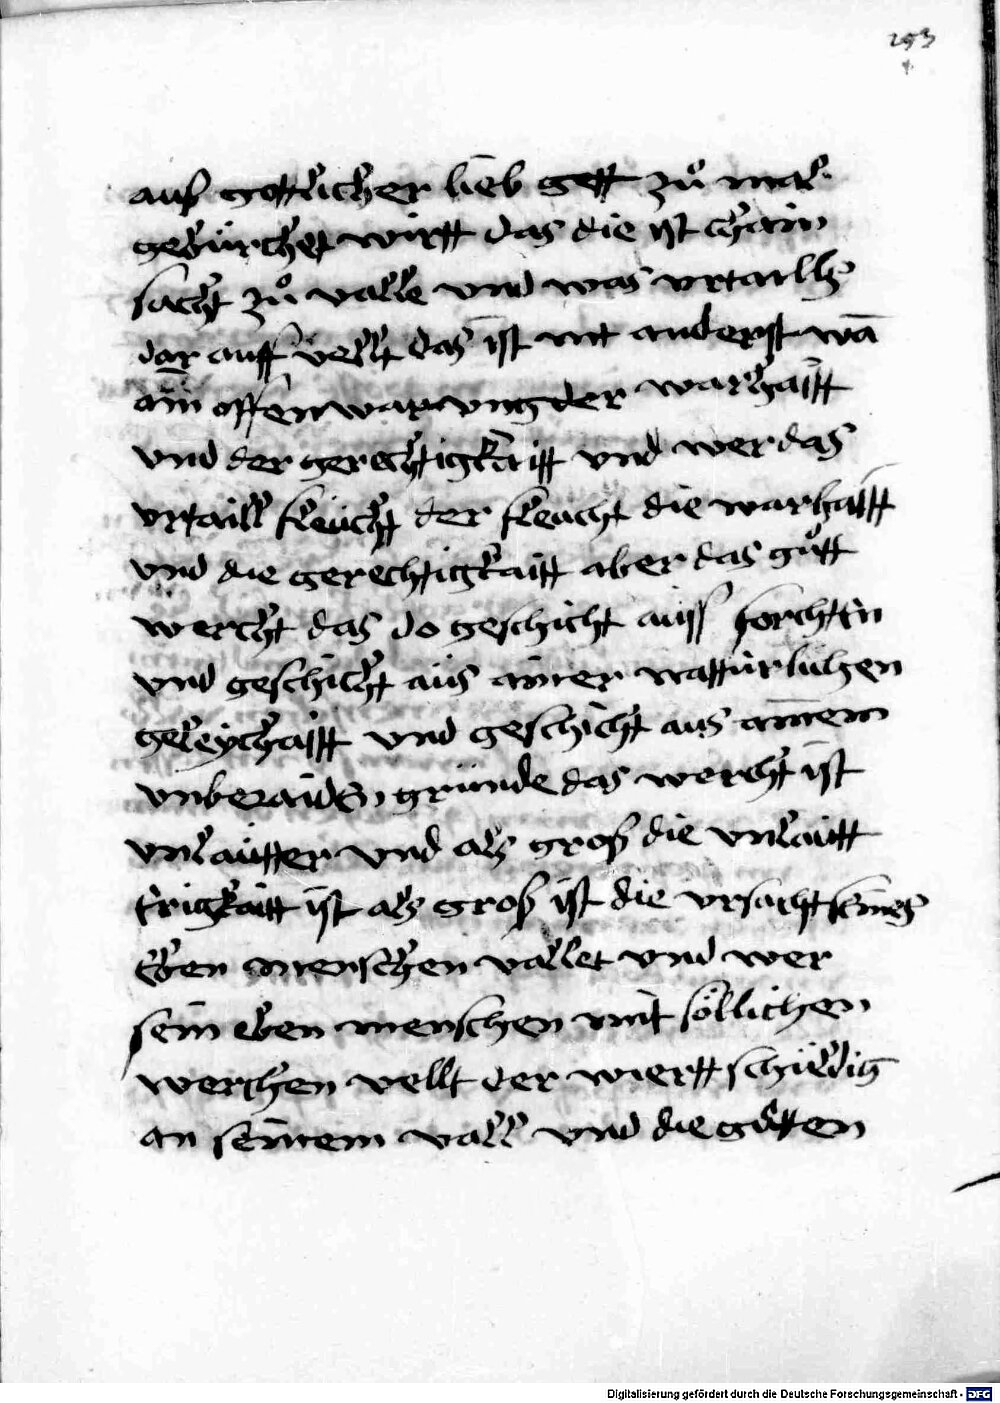 253
auß gottlicher lieb gett zů mal
gewürchet wirtt das die ist chain
sacht zů valle vnd was vrtaill
dar auff vellt das ist nit anderst wā
ain offenwarung der warhaitt
vnd der gerechtigkaitt vnd wer das
vrtaill fleücht der fleucht die warhaitt
vnd die gerechtigkaitt aber das gůtt
wercht das do geschicht auss forchten
vnd geschicht aüs ainer nattürlichen
geleychaitt vnd geschicht aus ainem
vnberaiden gründe das wercht ist
vnlaütter vnd als groß die vnlautt
trigkaitt ist als groß ist die vrsacht seines
eben menschen vallet vnd wer
sein eben menschen mit söllichen
werchen vellt der wirtt schuldig
an seinem vall vnd die gůtten
Digitalisierung gefördert durch die Deutsche Forschungsgemeinschaft - DFG